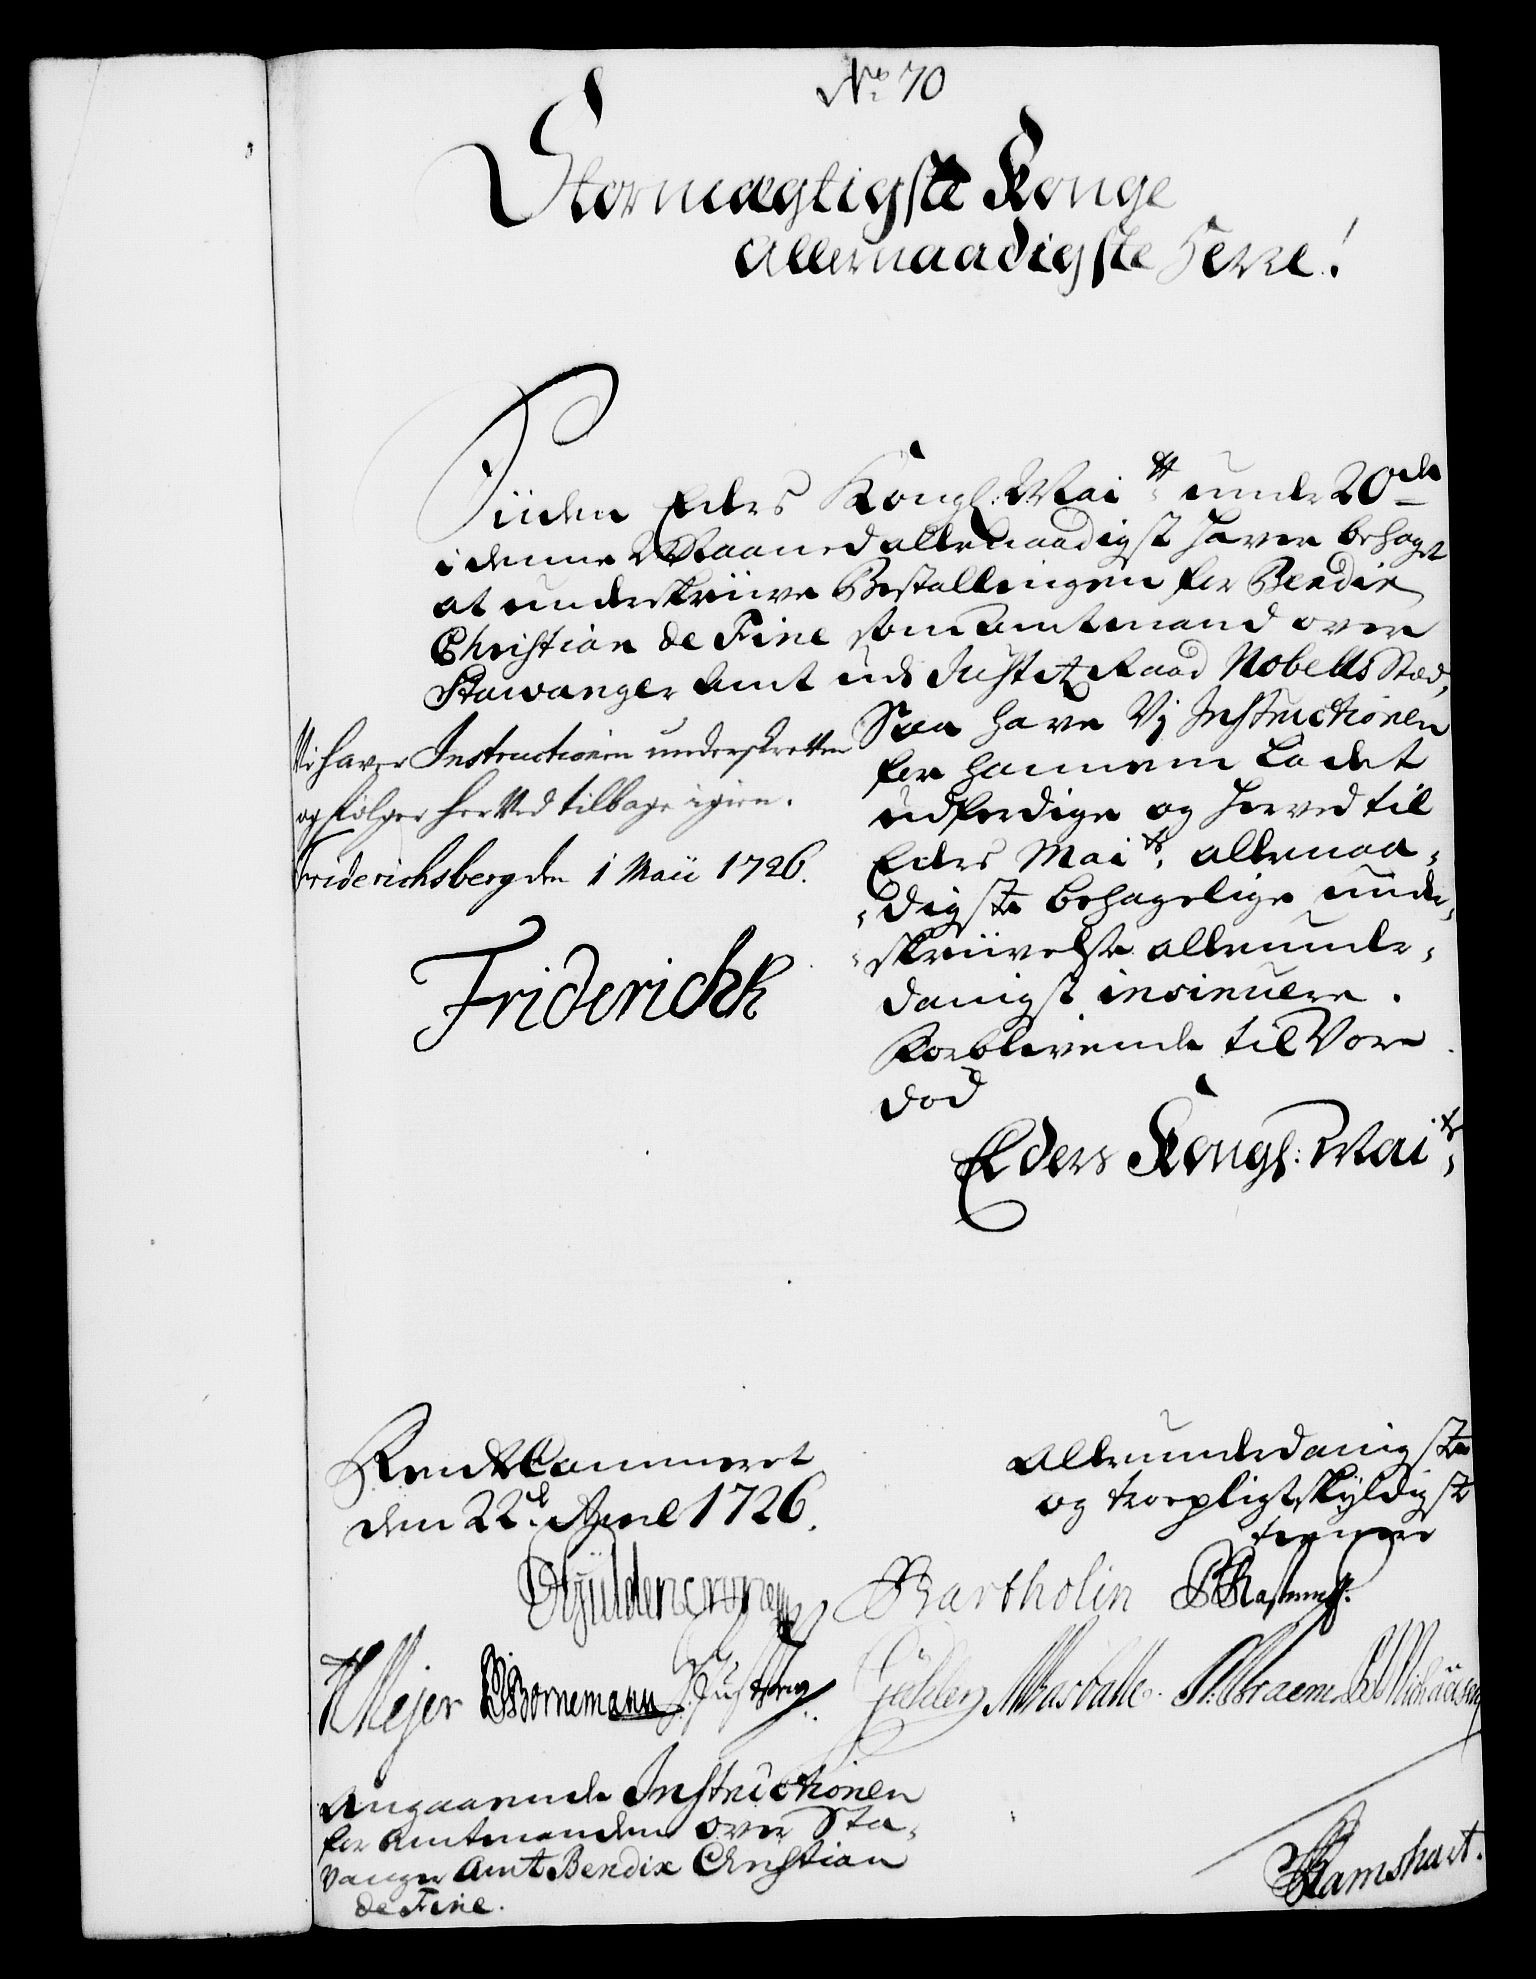 No 70
Stormægtigste Konge
Allernaadigste Herre!
Siiden Eders Kongl: Mai tt under 20de
i denne Maaned allernaadigst haver behaget
at underskriive Bestallingen for Bendix
Christian de Fine som Amtmand over
Stawanger Amt udi Justitz Raad Nobells Stæd,
Saa have Vj Instructionen
for hannem ladet
udferdige og herved til
Eders Mai ts allernaa-
digste behagelige under-
skriivelse allerunder-
danigst insinuere.
Forblivende til Vores
død
Eders Kongl: Mai ts
Vi haver Instructionen underskrefven
og følger her Ved tilbage igien.
Friderichsberg den 1 Maii 1726.
FriderichR
RenteCammeret
den 22de April 1726.
Allerunderdanigste
og troepligtskyldigste
tienere
Güldencrone
Bartholin
HMejer
Bornemann
Gülden
St: Braem
Angaaende Instructionen
for Amtmanden over Sta-
vanger Amt Bendix Christian
de Fine.
Ramshart.